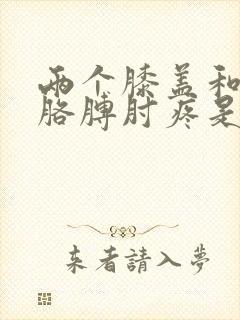 两个膝盖和
胳膊肘疼是
来者請入夢